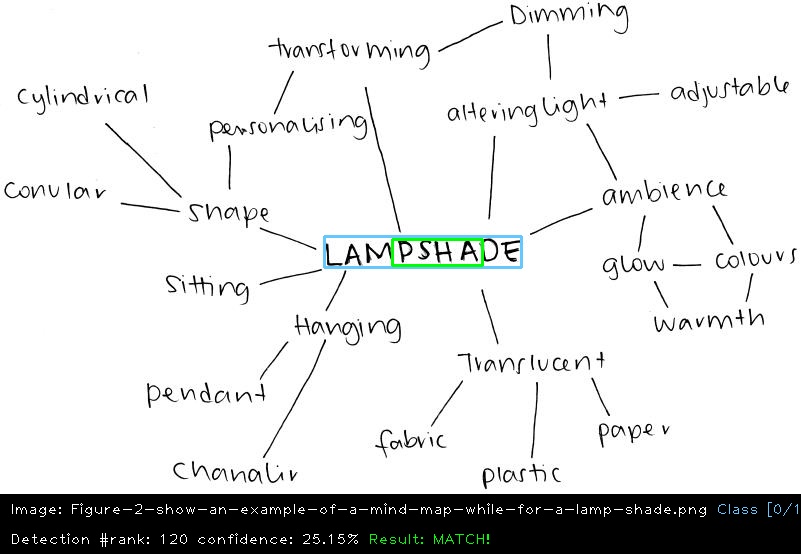 Dimming
transforming
Cylindrical
adjustable
altering light
personalising
conular
shape
ambience
LAMPSHADE
glow
colours
sitting
warmth
Hanging
Translucent
pendant
fabric
paper
chanalir
plastic
Image: Figure-2-show-an-example-of-a-mind-map-while-for-a-lamp-shade.png Class [0/1
Detection #rank: 120 confidence: 25.15% Result: MATCH!